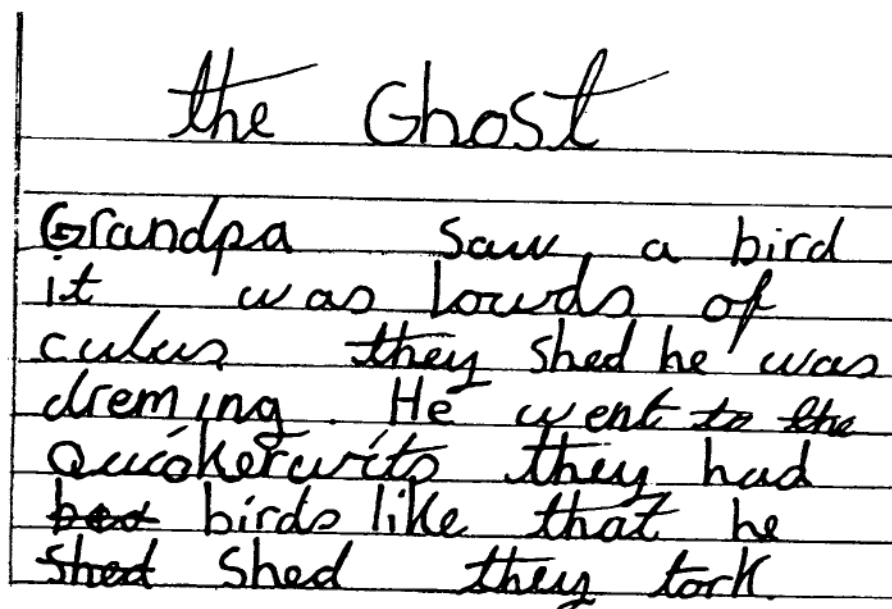 the Ghost
Grandpa saw a bird
it was lowds of
culus they shed he was
dreming. He went to the
Quickerwits they had
birds like that he
shed they tork.